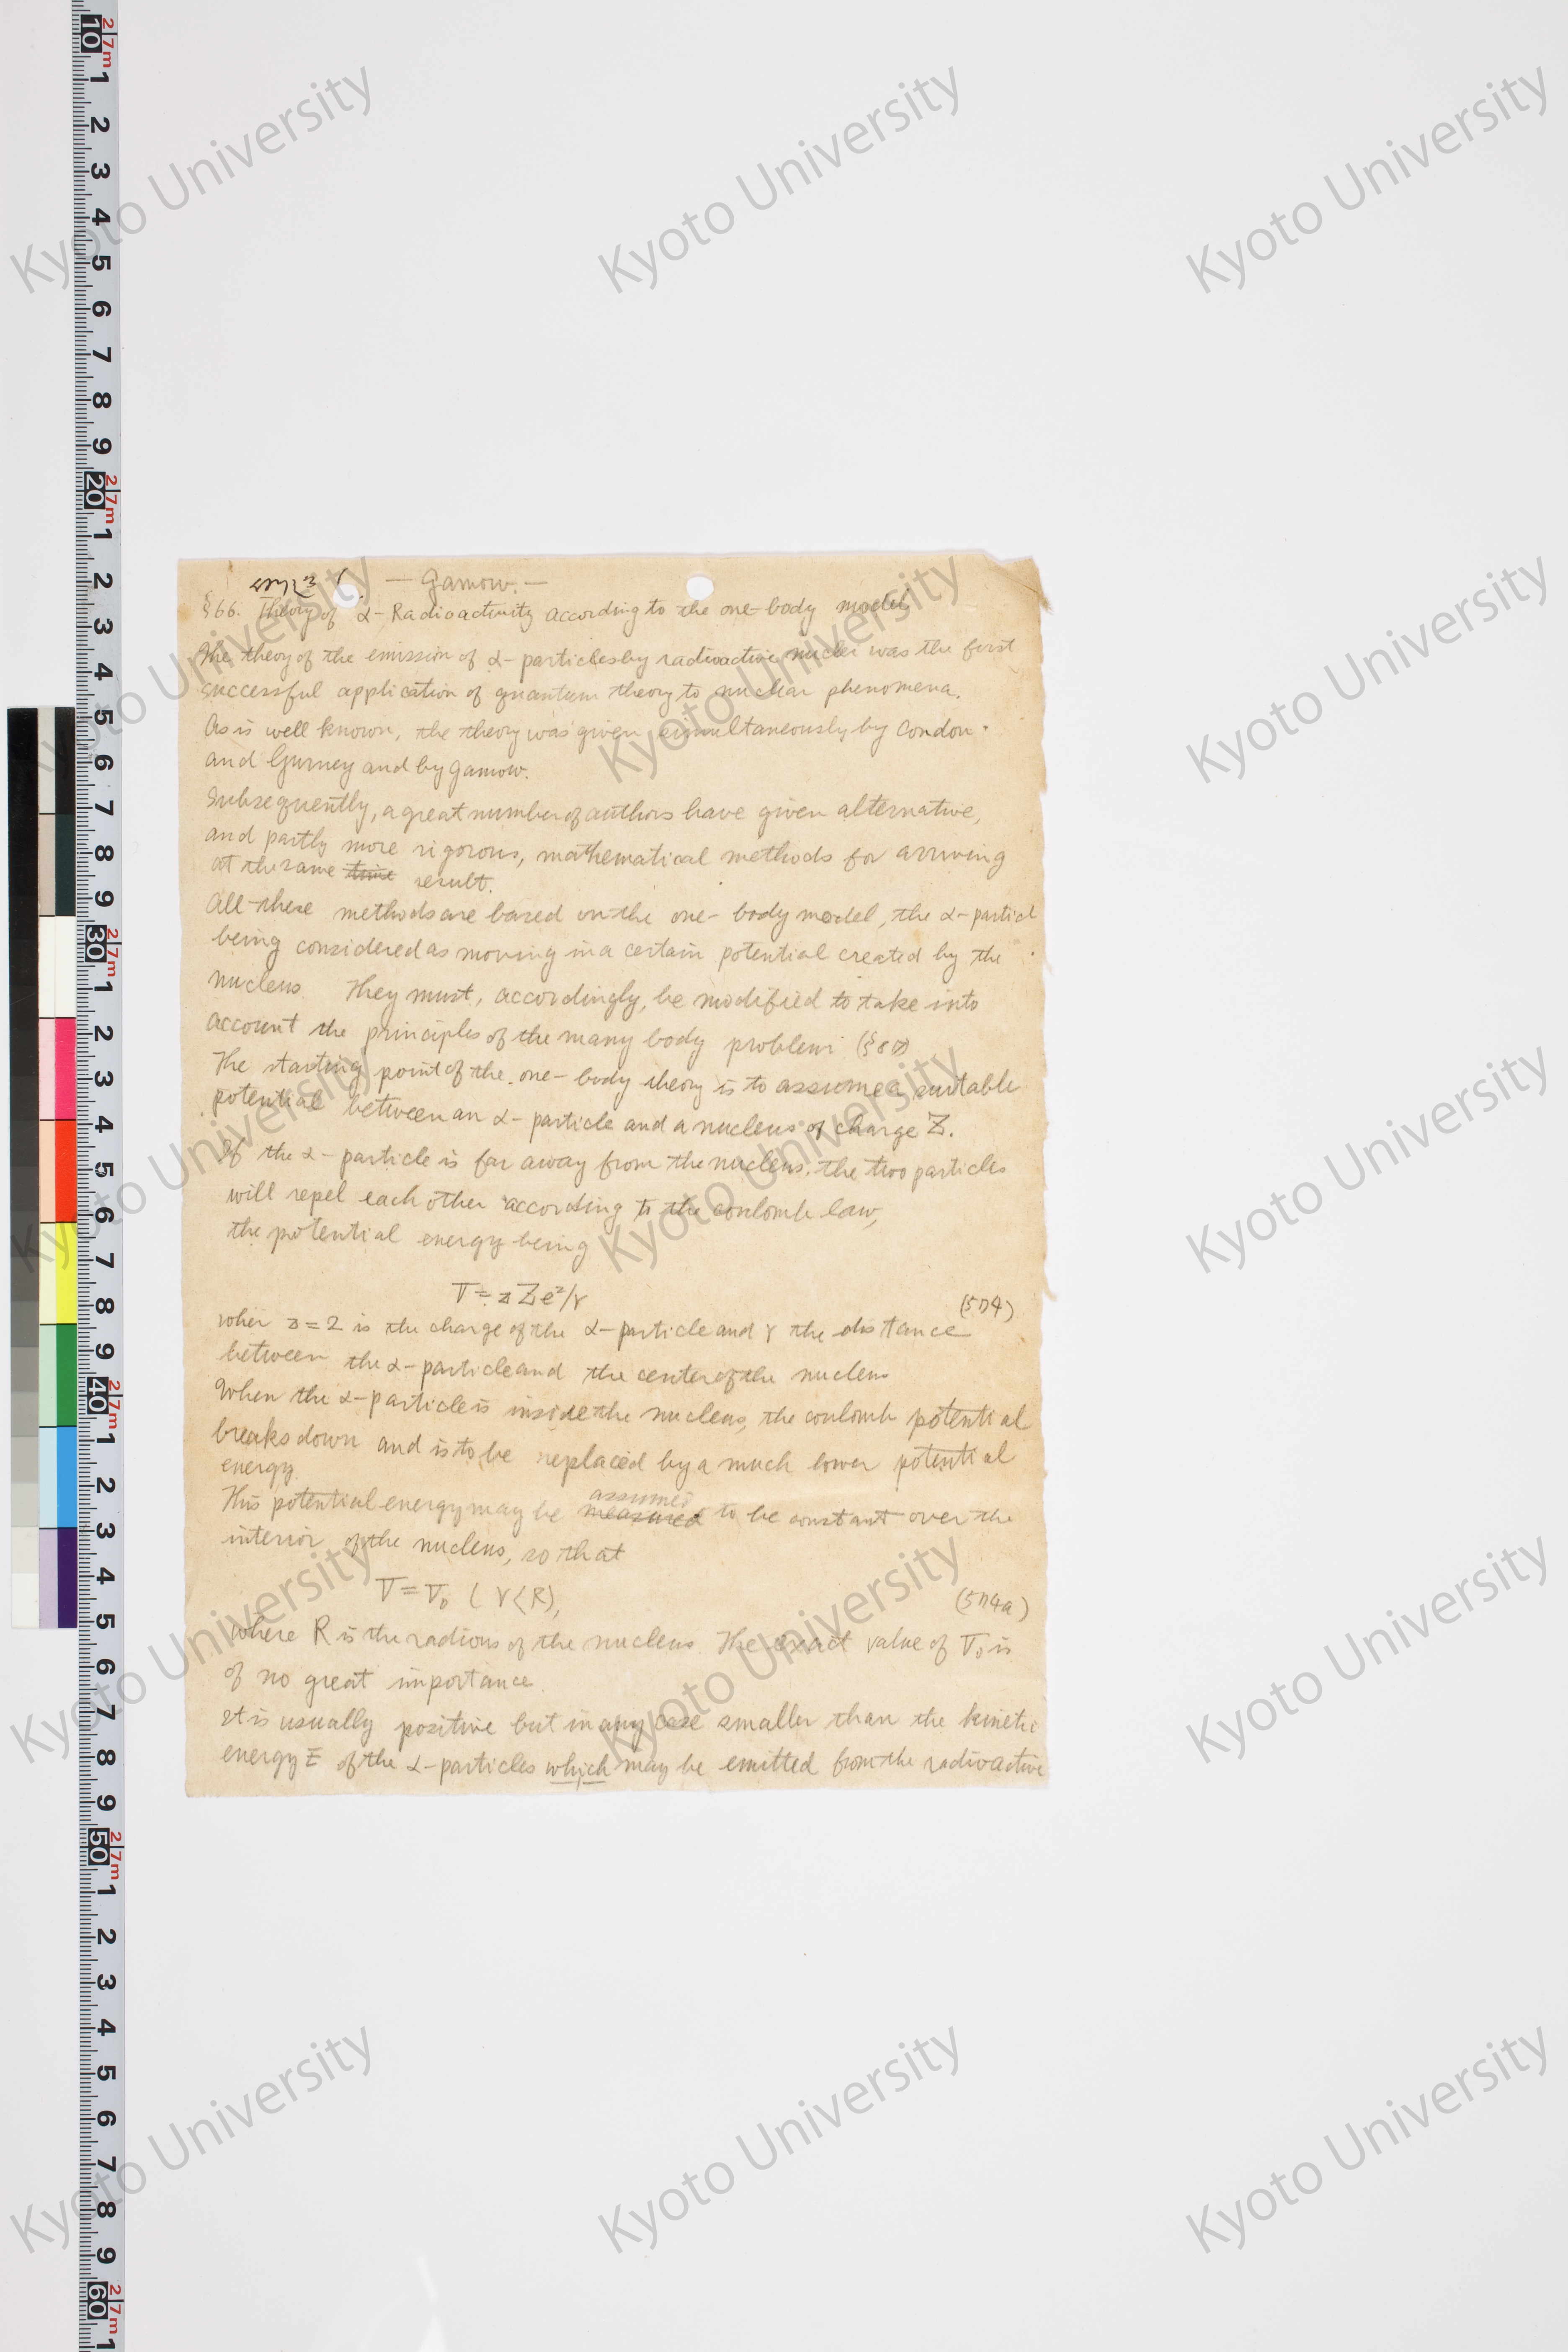 — Gamow. —
§66. Theory of α-Radioactivity according to the one-body model,
The theory of the emission of α-particles by radioactive nuclei was the first
successful application of quantum theory to nuclear phenomena.
As is well known, the theory was given simultaneously by Condon
and Gurney and by Gamow.
Subsequently, a great number of authors have given alternative,
and partly more rigorous, mathematical methods for arriving
at the same time result.
All these methods are based on the one-body model, the α-particl
being considered as moving in a certain potential created by the
nucleus. They must, accordingly, be modified to take into
account the principles of the many body problem
The starting point of the one-body theory is to assume a suitable
potential between an α-particle and a nucleus of charge Z.
If the α-particle is far away from the nucleus, the two particles
will repel each other according to the coulomb law,
the potential energy being
V = zZe²/r (574)
wher z=2 is the charge of the α-particle and r the distance
between the α-particle and the center of the nucleus
When the α-particle is inside the nucleus, the coulomb potential
breaks down and is to be replaced by a much lower potential
energy.
assumed
This potential energy may be measured to be constant over the
interior of the nucleus, so that
V = V₀ (r<R), (574a)
where R is the radious of the nucleus. The exact value of V₀ is
of no great importance.
It is usually positive but in any case smaller than the kineti
energy E of the α-particles which may be emitted from the radioactive
10 1 2 3 4 5 6 7 8 9
20 1 2 3 4 5 6 7 8 9
30 1 2 3 4 5 6 7 8 9
40 1 2 3 4 5 6 7 8 9
50 1 2 3 4 5 6 7 8 9
60 1
27m
Kyoto University